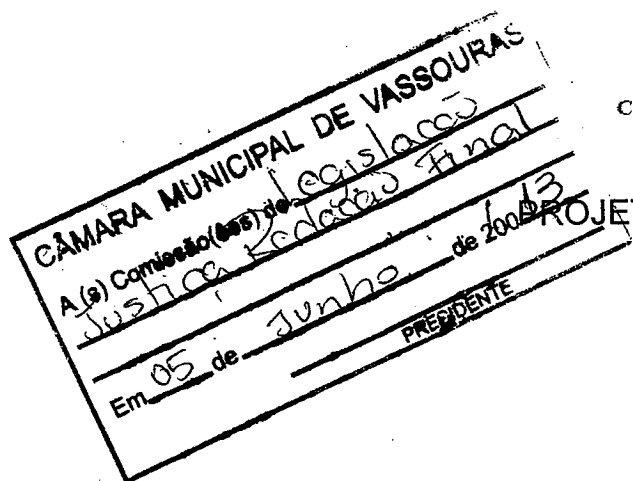 CÂMARA MUNICIPAL DE VASSOURAS
A (s) Comissão(ões) de Legislação
Justiça Redação Final
Em 05 de Junho de 200 13
PRESIDENTE
PROJET